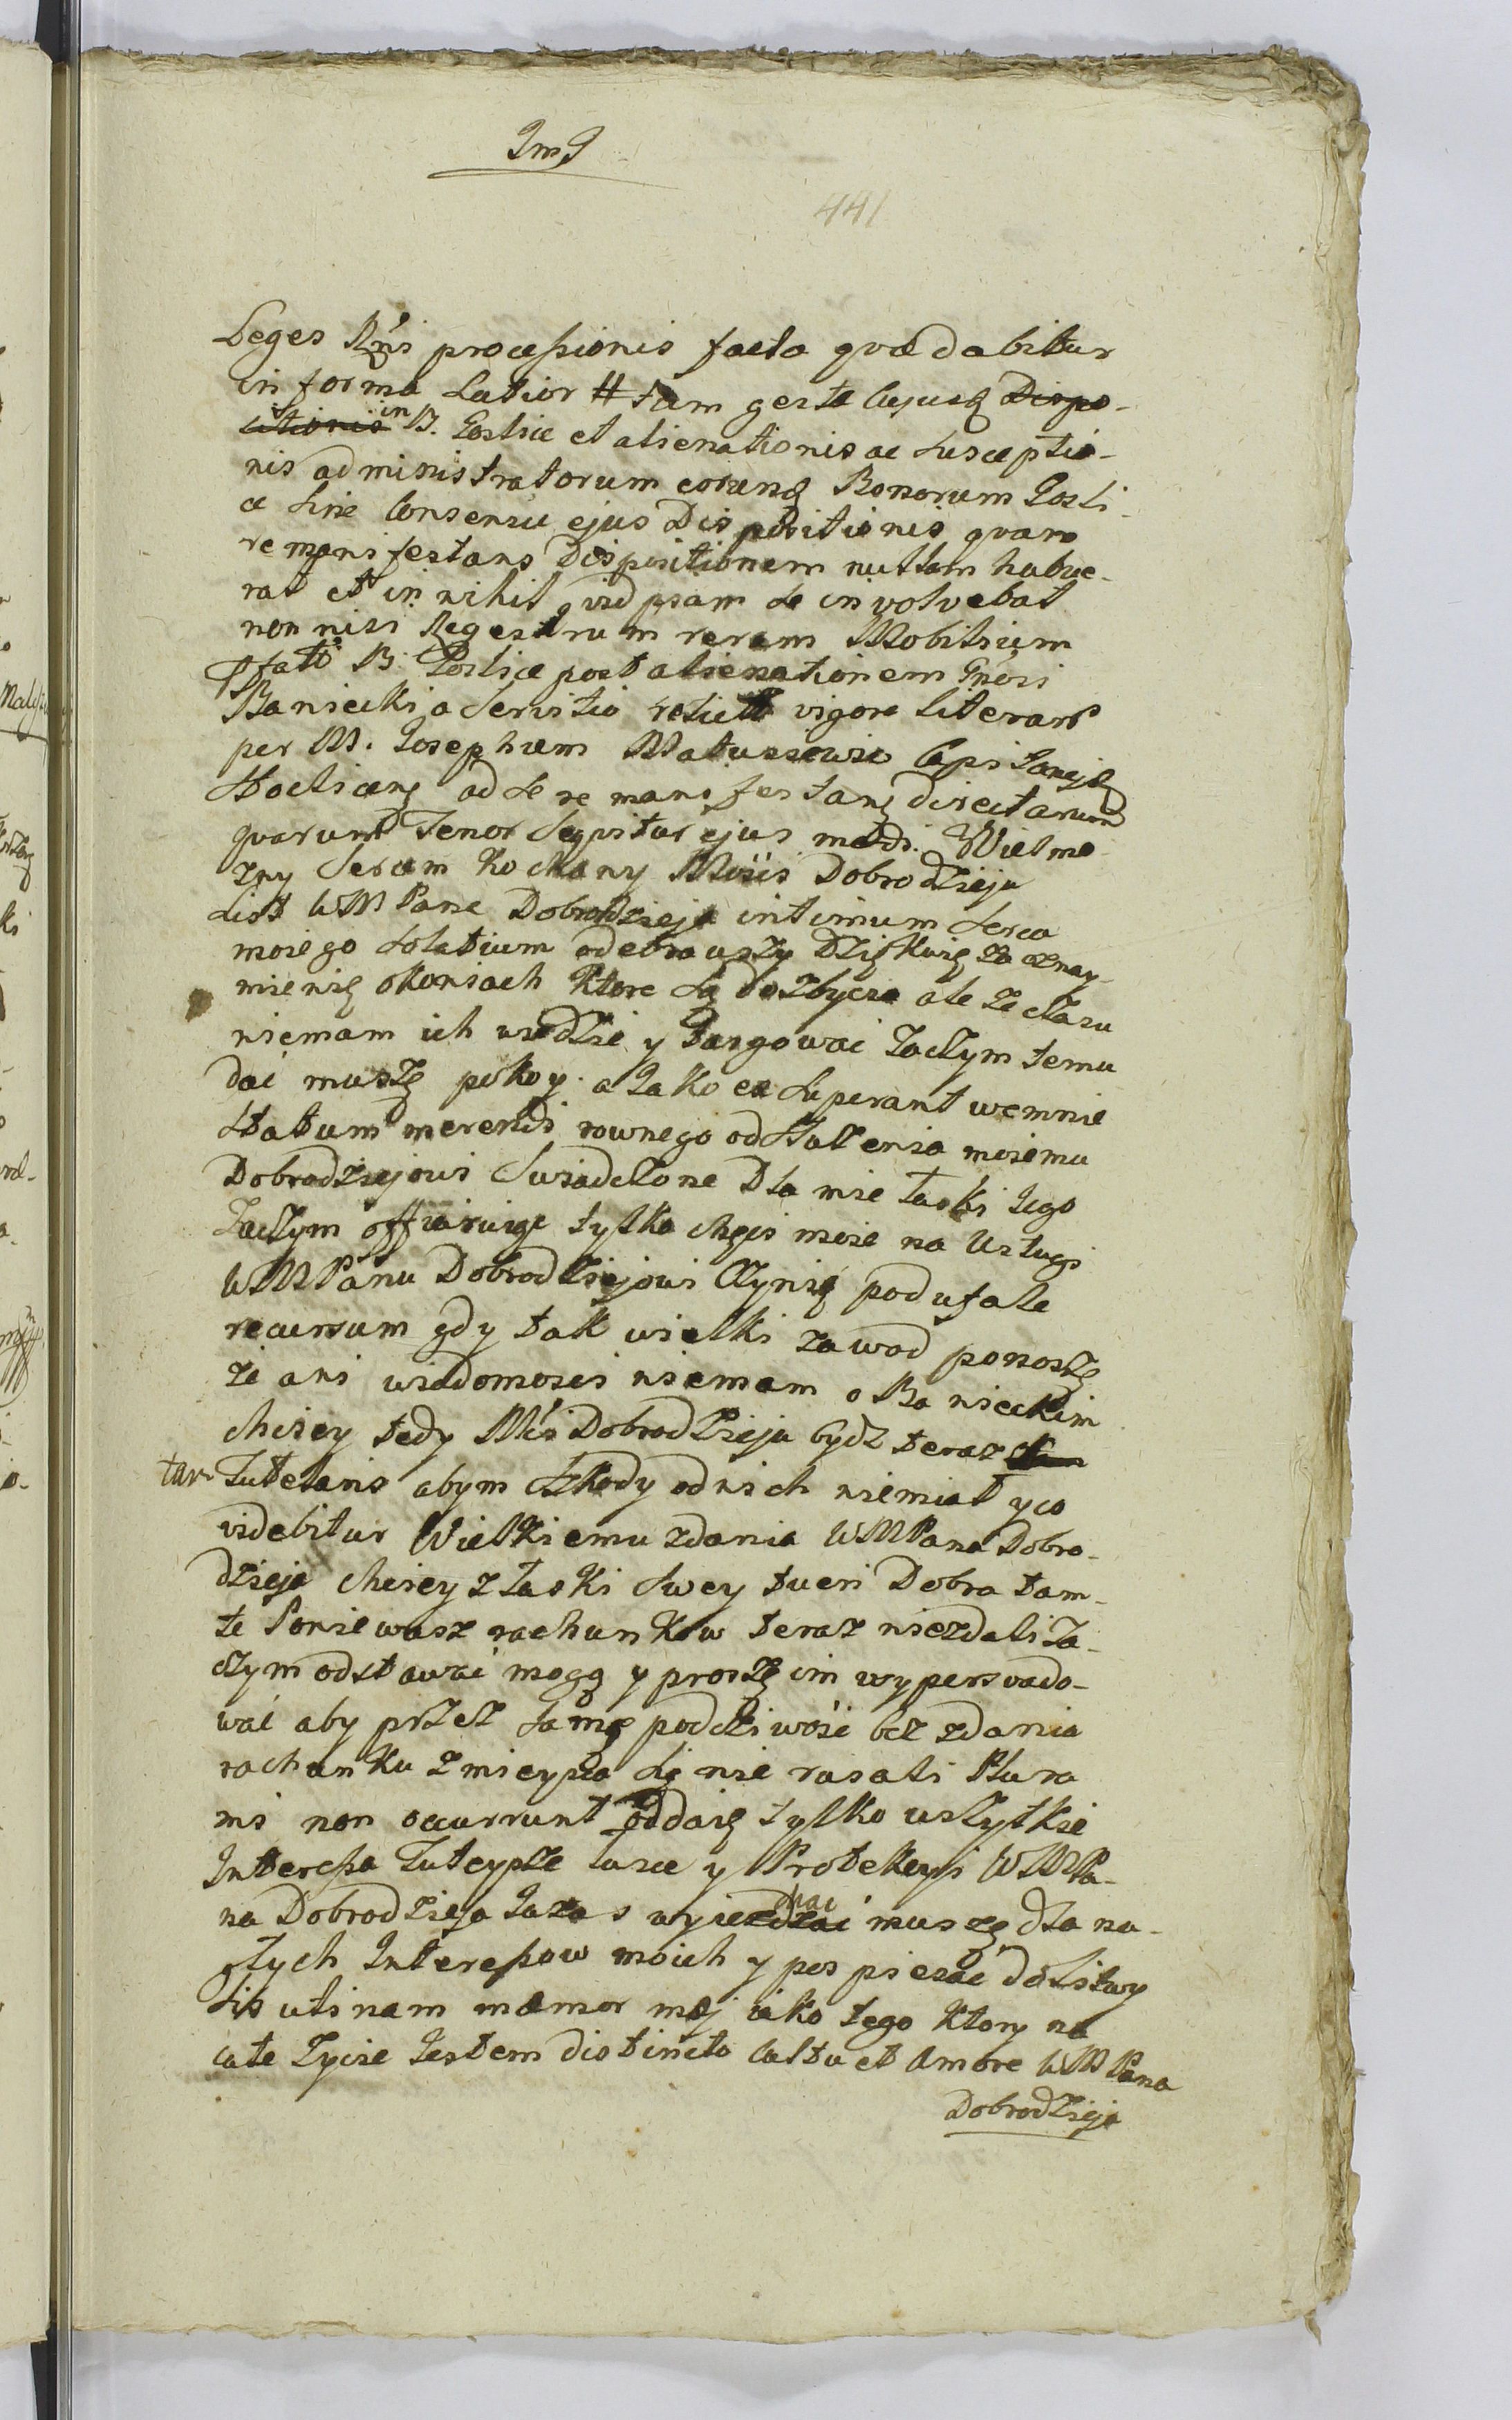 JmJ
441
Leges Rgni processionis facta qvæ dabitur
in forma Latior # tam gesta Cujusq Dispo-
sitionis in B. Goslice et alienationis ac Suscептio-
nis administratorum eorunq Bonorum Gosli-
ce sine Consensu ejus Dispositionis qvam
remanifestans Dispositionem nullam habue-
rat et in nihil qvidpiam se involvebat
non nisi Regestrum rerum Mobilium
pfato B: Goslice post alienationem Gnosi
Baniecki a Servitio relictt vigore literarů
per M. Josephum Matussewic Capitanejq
Stoclicenq ad se remanifestanq directarum
qvarum Tenor Seqvitur ejus modi. Wielmo-
zny Sercem kochany Mości Dobrodzieju
List WM Pana Dobrodzieja intimum serca
moiego solatium odebrawszy Dziękuię za oznay-
mienię okoniach ktore są do zbycia ale ze czasu
niemam ich widzie y Targowac zaczym temu
dac muszę pokoy. a Jako ea superant wemnie
statum merendi rownego odsłużenia moiemu
Dobrodziejowi Swiadczone Dla mie łaski Jego
Zaczym offiaruiąc tylko chęci moie na Usługi
WMPanu Dobrodziejowi Czynię podufale
recursum gdy tak wielki zawod ponoszę
że ani wiadomosci niemam o Banieckim
chciey tedy Mści Dobrodzieju bydz teraz
tan Tutelaris abym szkody od nich niemiał y co
videbitur Wielkiemu zdaniu WMPana Dobro-
dzieja chciey z łaski Swey tueri Dobra tam-
te Poniewasz rachunkow teraz niezdali Za-
czym odstawać mogą y proszę im wypersvado-
wać aby przez samą podcziwość bez zdania
rachunku z mieysca się nie rusali Plura
mi non occurrunt oddaię tylko wszytkie
Interessa Tuteysze Łasce y Protekcyi WMPa-
na Dobrodzieja Ja zas wyiezdzać muszę dla na-
głych Interessow moich y pospieszać do Litwy
Sis utinam memor mej iako tego ktory na
całe Zycie Jestem distincto Cultu et Amore WMPana
Dobrodzieja